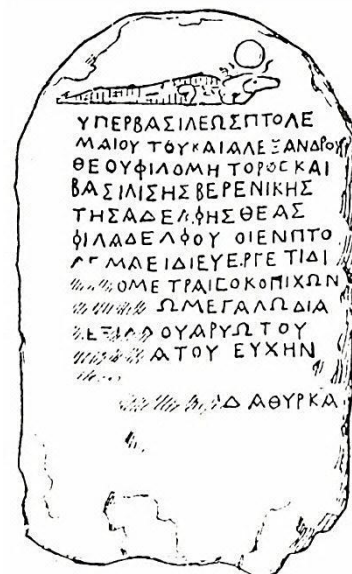 ΥΠΕΡΒΑΣΙΛΕΩΣΠΤΟΛΕ
ΜΑΙΟΥ ΤΟΥΚΑΙΑΛΕΞΑΝΔΡΟΥ
ΘΕΟΥΦΙΛΟΜΗΤΟΡΟΣΚΑΙ
ΒΑΣΙΛΙΣΗΣΒΕΡΕΝΙΚΗΣ
ΤΗΣΑΔΕΛΦΗΣΘΕΑΣ
ΦΙΛΑΔΕΛΦΟΥ ΟΙΕΝΠΤΟ
ΜΑΕΙΔΙΕΥΕΡΓΕΤΙΔΙ
ΟΜΕΤΡΑΙΣΟΚΟΠΙΧΩΝ
ΩΜΕΓΑΛΩΔΙΑ
ΟΥΑΡΥΩΤΟΥ
ΑΤΟΥ ΕΥΧΗΝ
ΑΘΥΡΚΑ